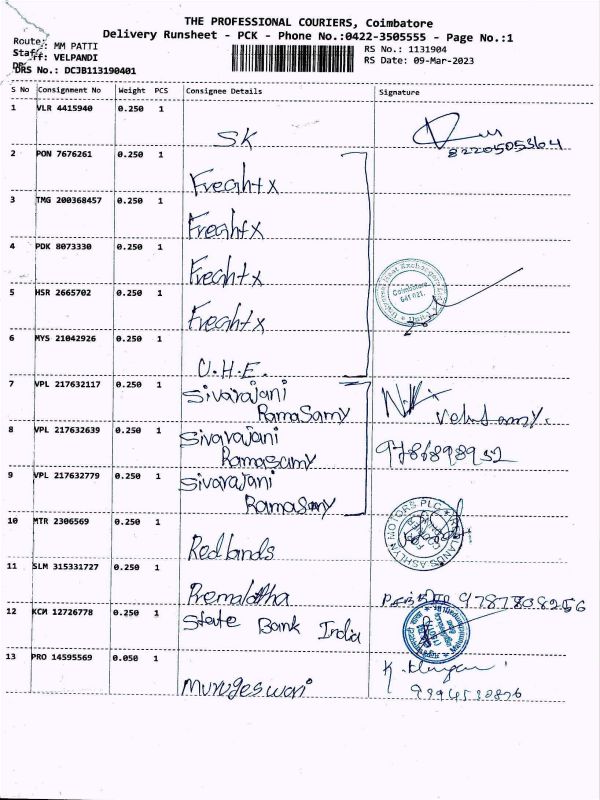 THE PROFESSIONAL COURIERS, Coimbatore
Delivery Runsheet - PCK - Phone No.:0422-3505555 - Page No.:1
Route: MM PATTI
Staff: VELPANDI
DRS No.: DCJB113190401
RS No.: 1131904
RS Date: 09-Mar-2023
S No Consignment No Weight PCS Consignee Details Signature
1 VLR 4415940 0.250 1
SK
8220505364
2 PON 7676261 0.250 1
Freahtx
3 TMG 200368457 0.250 1
Freahtx
4 PDK 8073330 0.250 1
Freahtx
Coimbatore
641 021.
5 HSR 2665702 0.250 1
Freahtx
6 MYS 21042926 0.250 1
U.H.E.
7 VPL 217632117 0.250 1
Sivarajani
RamaSamy
8 VPL 217632639 0.250 1
Sivarajani
Ramasamy
9786898952
9 VPL 217632779 0.250 1
Sivarajani
RamaSamy
10 MTR 2306569 0.250 1
Redlands
MOTORS PLC
11 SLM 315331727 0.250 1
Premalatha
9787808256
12 KCM 12726778 0.250 1
State Bank India
13 PRO 14595569 0.050 1
Murugeswari